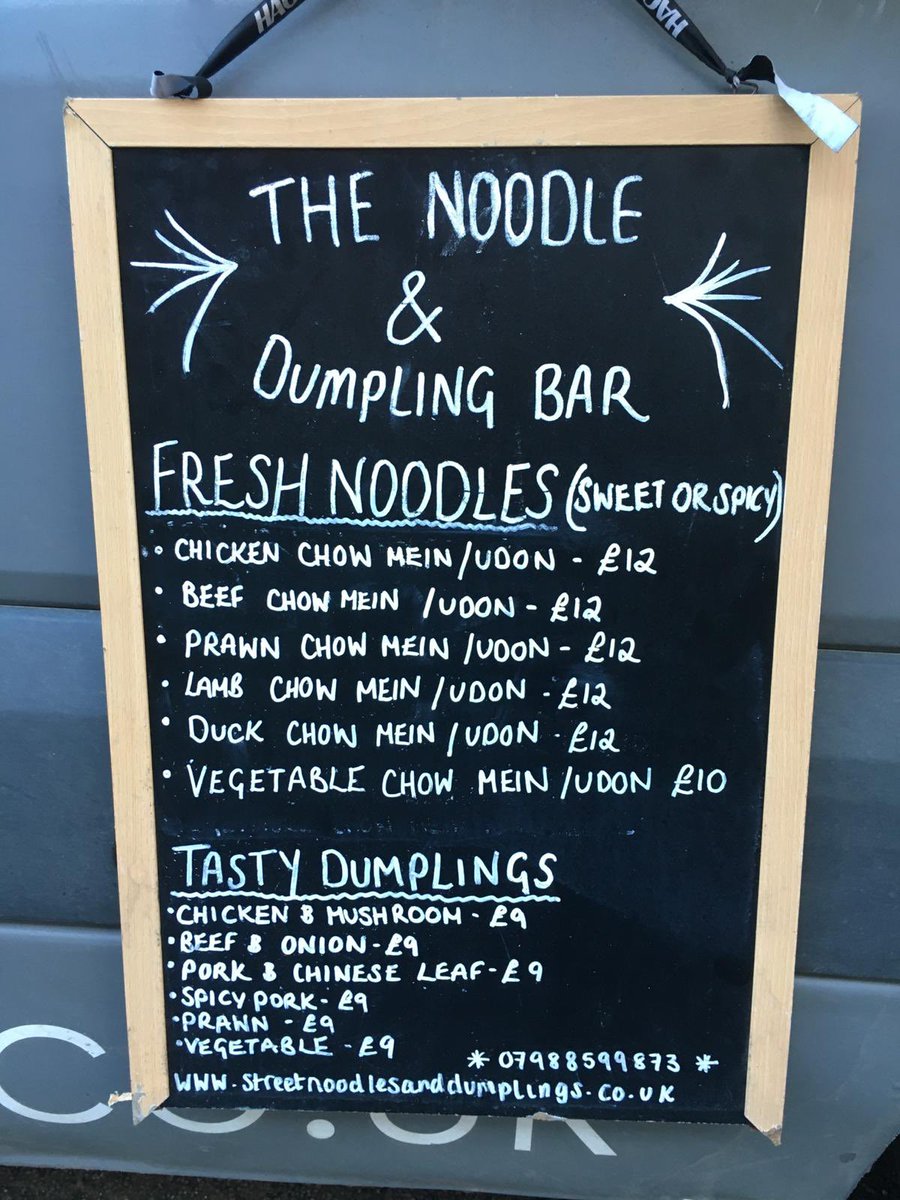 HAU
HAU
THE NOODLE
&
DUMPLING BAR
FRESH NOODLES (SWEET OR SPICY)
• CHICKEN CHOW MEIN/UDON - £12
• BEEF CHOW MEIN /UDON - £12
• PRAWN CHOW MEIN /UDON - £12
• LAMB CHOW MEIN /UDON - £12
• DUCK CHOW MEIN /UDON - £12
• VEGETABLE CHOW MEIN /UDON £10
TASTY DUMPLINGS
• CHICKEN & MUSHROOM - £9
• BEEF & ONION - £9
• PORK & CHINESE LEAF - £9
• SPICY PORK - £9
• PRAWN - £9
• VEGETABLE - £9
* 07988599873 *
WWW.streetnoodlesanddumplings.co.uk
CO.UK